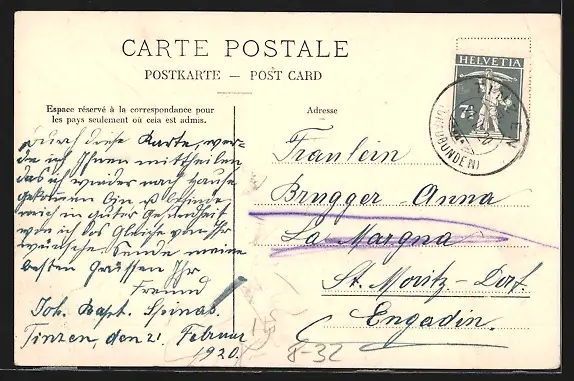 CARTE POSTALE
POSTKARTE — POST CARD
Espace réservé à la correspondance pour
les pays seulement où cela est admis.
Adresse
HELVETIA
7½
(GRAUBÜNDEN)
Durch diese Karte, wer-
de ich Ihnen mittheilen
das ich wieder nach Hause
gekommen bin & befinde
mich in guter Gesundheit
von ich das Gleiche von Ihr
wünsche. Sende meine
besten Grüssen Ihr
Freund
Joh. Bapt. Spinas.
Tinzen, den 21 Februar
1920.
Fraulein
Brugger Anna
La Margna
St. Moritz-Dorf.
Engadin.
8-32